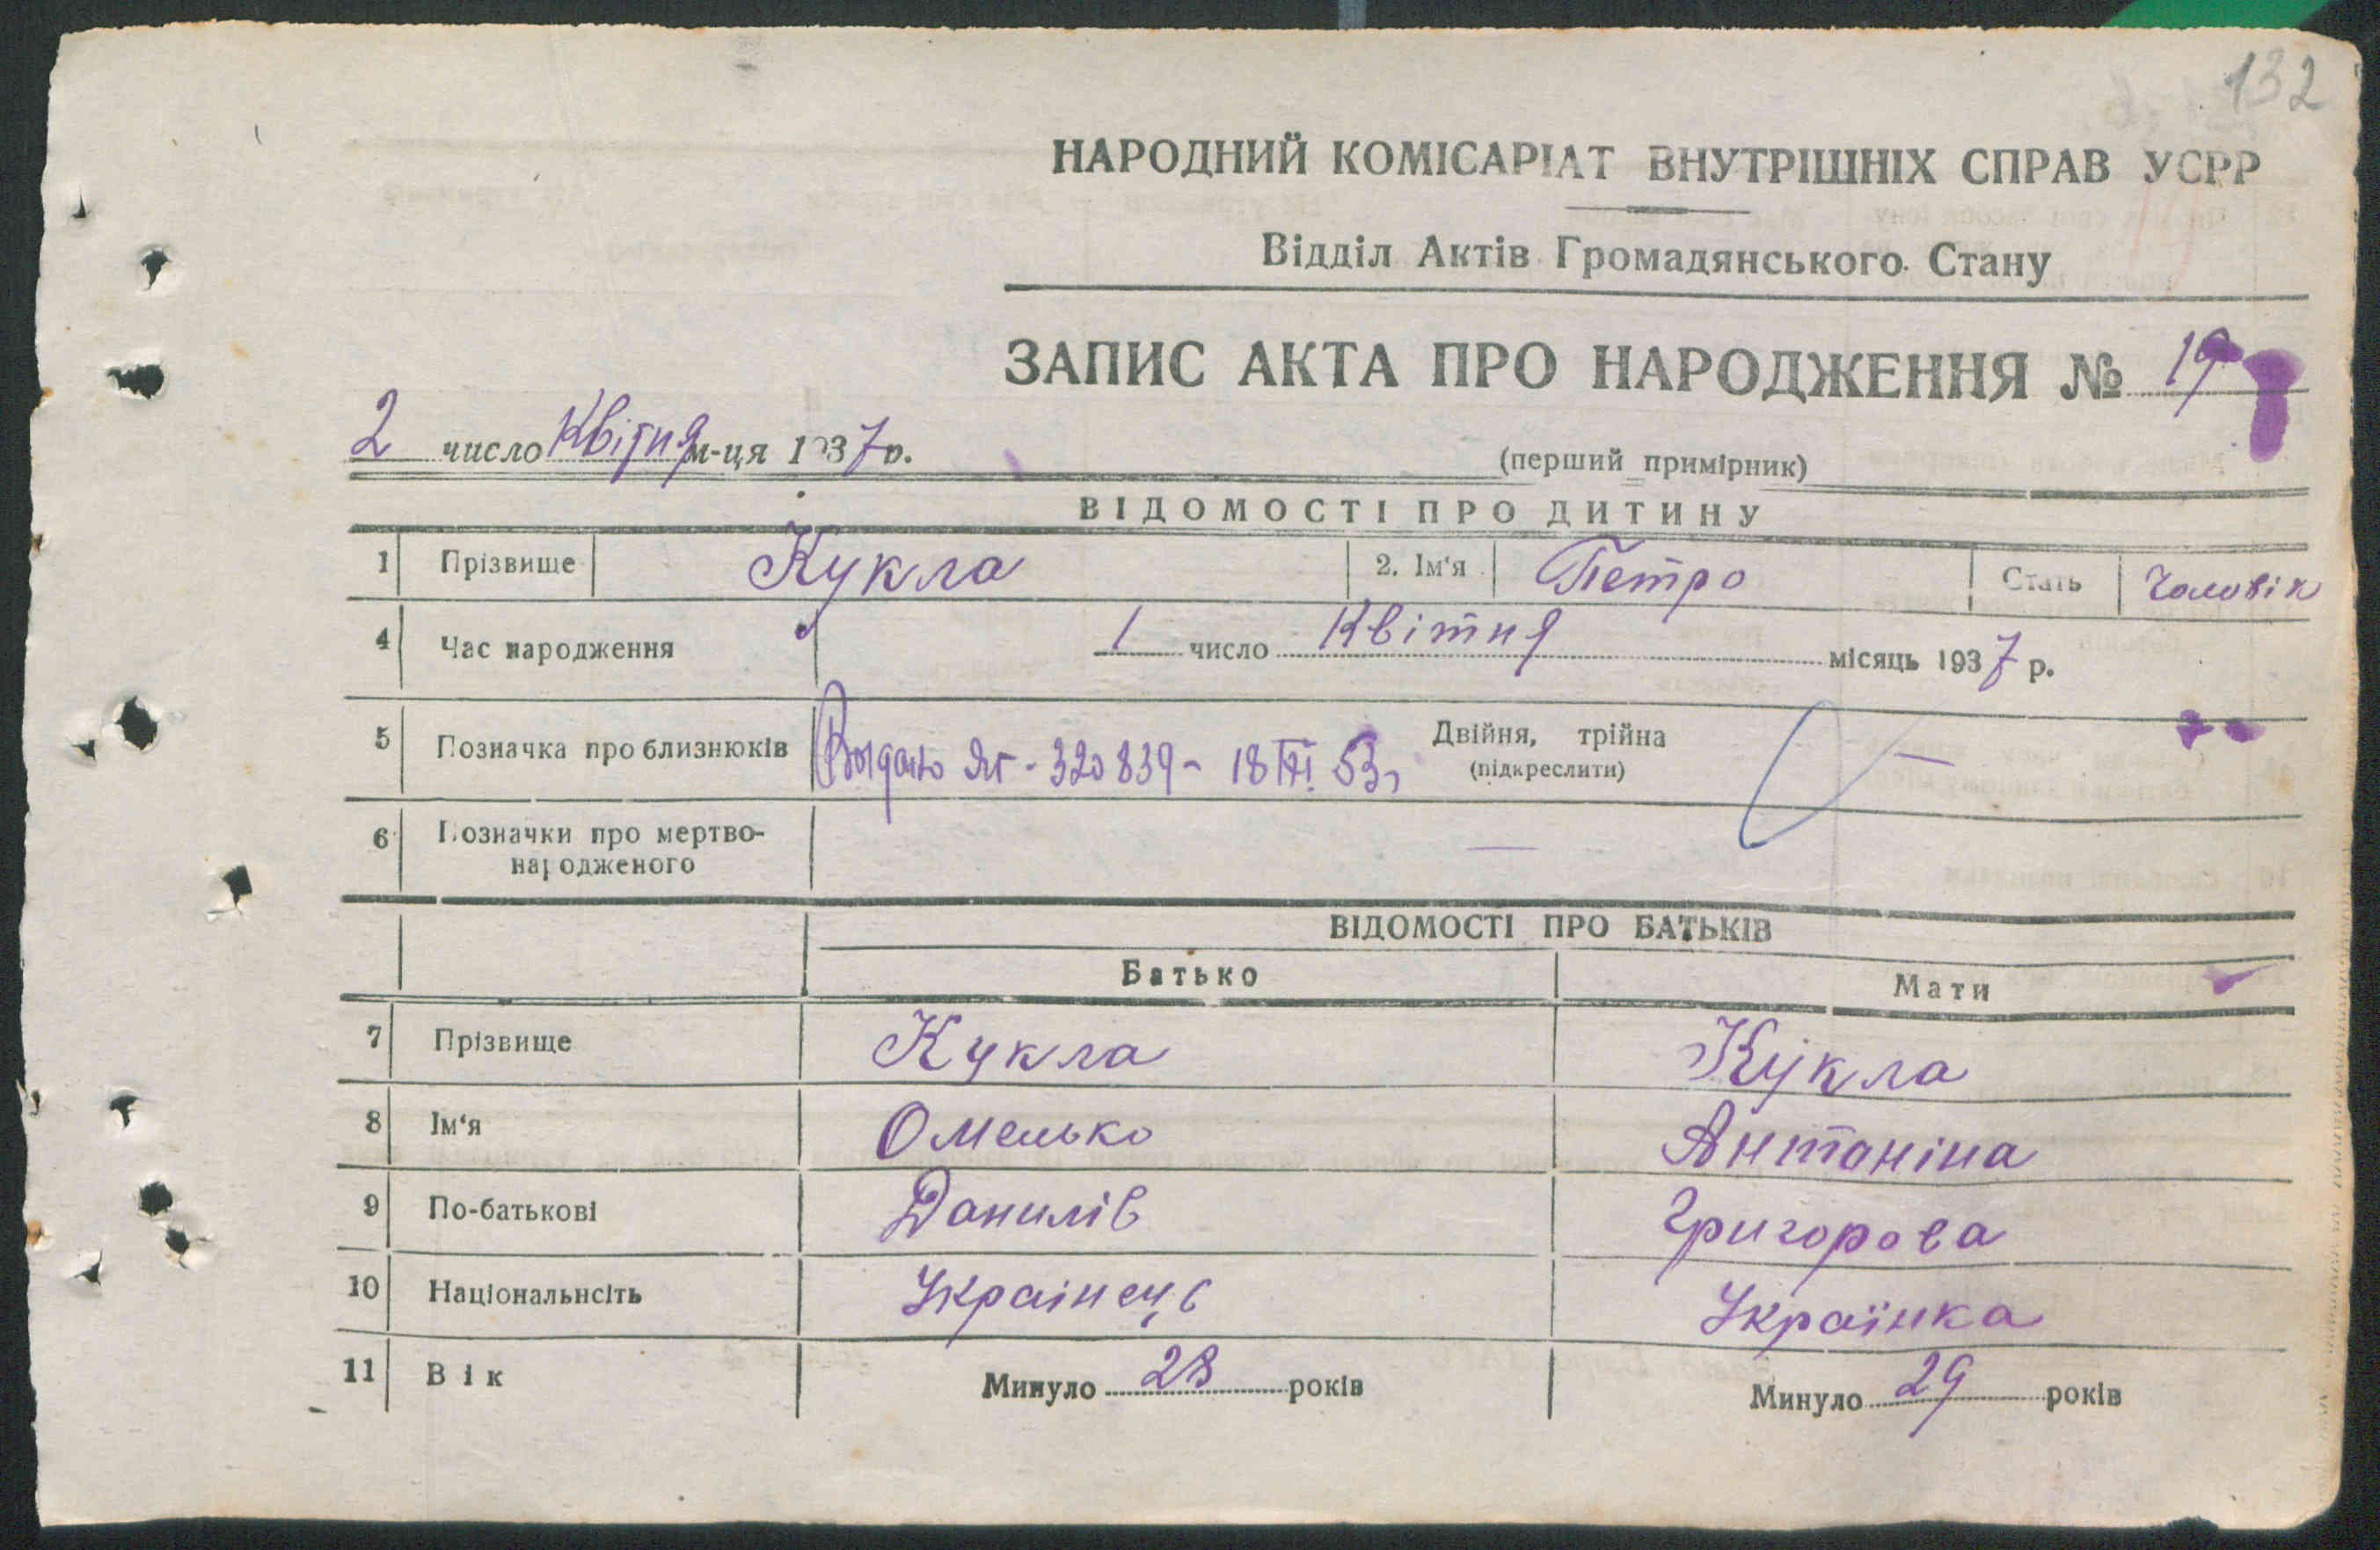 132
НАРОДНИЙ КОМІСАРІАТ ВНУТРІШНІХ СПРАВ УСРР
Відділ Актів Громадянського Стану
ЗАПИС АКТА ПРО НАРОДЖЕННЯ № 19
2 число Квітня м-ця 1937 р.
(перший примірник)
ВІДОМОСТІ ПРО ДИТИНУ
1 Прізвище Кукла 2. Ім'я Петро Стать Чоловік
4 Час народження 1 число Квітня місяць 1937 р.
5 Позначка про близнюків 320839 - 18 53 Двійня, трійна
(підкреслити)
6 Позначки про мертво-
народженого —
ВІДОМОСТІ ПРО БАТЬКІВ
Батько Мати
7 Прізвище Кукла Кукла
8 Ім'я Омелько Антаніна
9 По-батькові Данилів Григорова
10 Національнсіть Украінець Українка
11 Вік Минуло 28 років Минуло 29 років